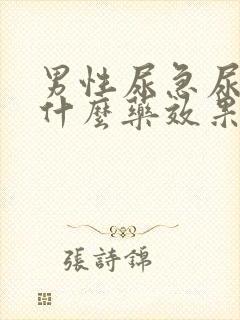 男性尿急尿
什麼藥效果
張詩錦